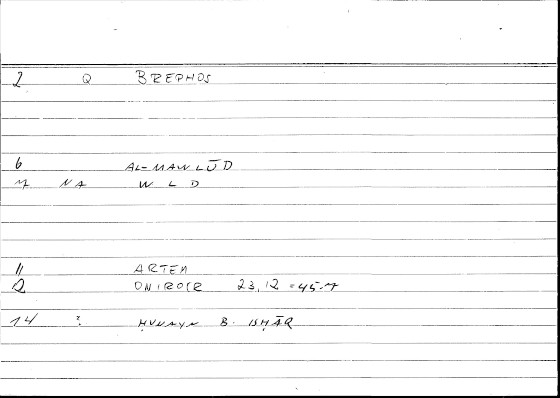 2 Q BREPHOS
6 AL-MAWLŪD
7 NA WLD
11 ARTEM
12 ONIROCR 23,12 = 45.7
14 ? ḤUNAYN B. ISḤĀQ